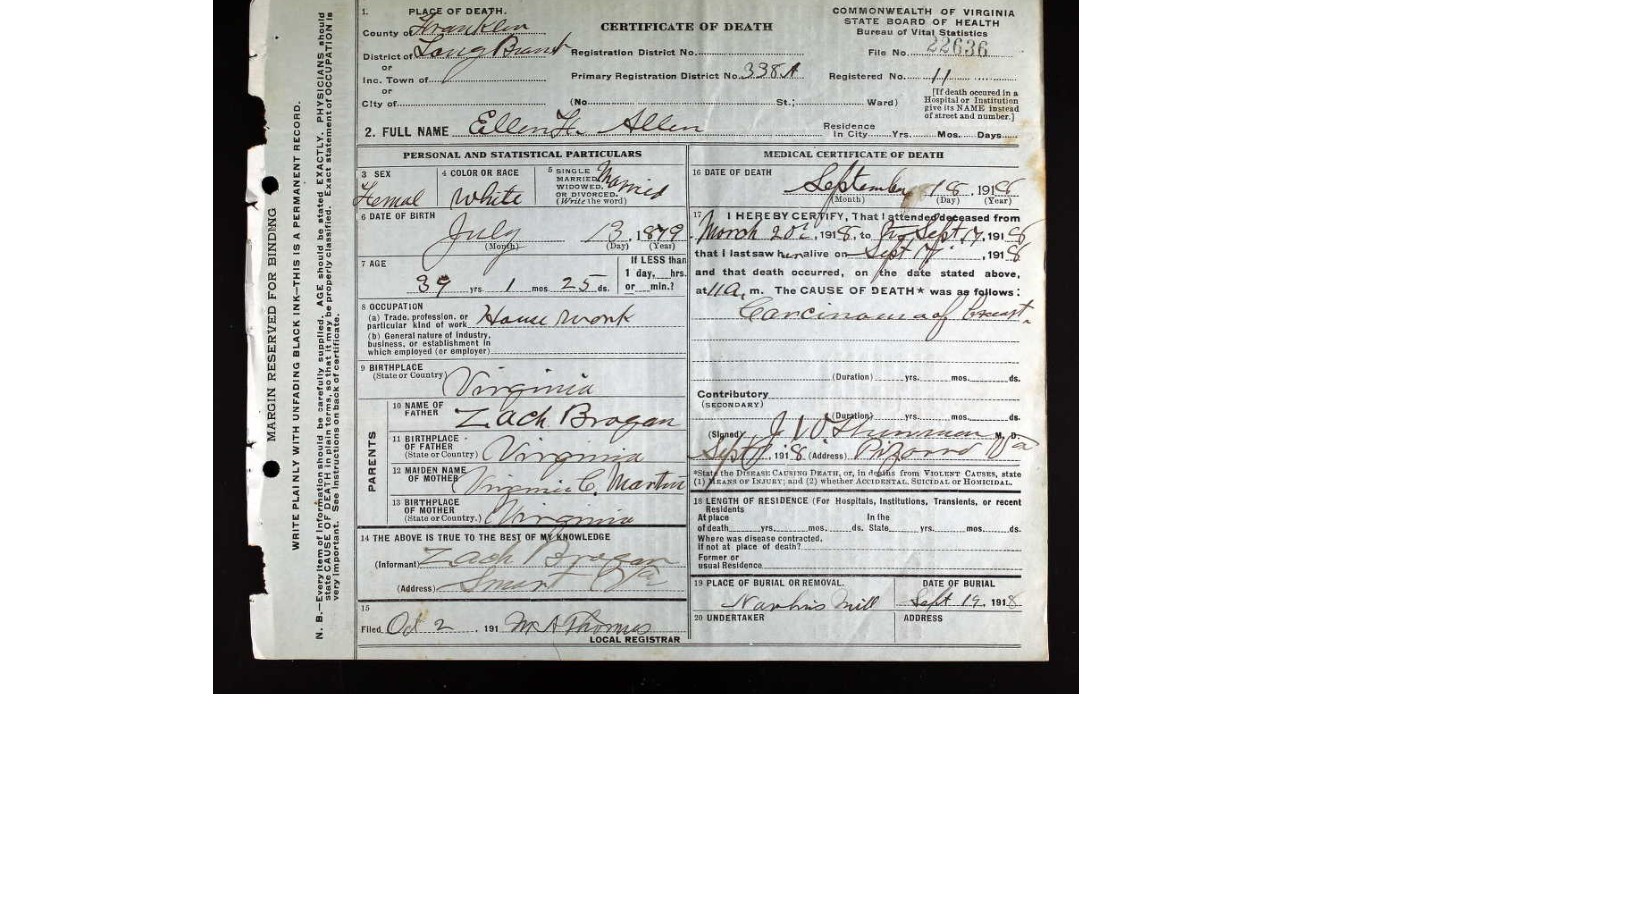 MARGIN RESERVED FOR BINDING
WRITE PLAINLY WITH UNFADING BLACK INK—THIS IS A PERMANENT RECORD.
N. B.—Every item of information should be carefully supplied. AGE should be stated EXACTLY. PHYSICIANS should
state CAUSE OF DEATH in plain terms, so that it may be properly classified. Exact statement of OCCUPATION is
very important. See instructions on back of certificate.
1. PLACE OF DEATH.
County of Franklin
District of Long Branch
or
Inc. Town of
or
City of
CERTIFICATE OF DEATH
Registration District No.
Primary Registration District No. 338A
(No. St.; Ward)
COMMONWEALTH OF VIRGINIA
STATE BOARD OF HEALTH
Bureau of Vital Statistics
File No. 22636
Registered No. 11
[If death occured in a
Hospital or Institution
give its NAME instead
of street and number.]
2. FULL NAME Ellen H. Allen
Residence
In City Yrs. Mos. Days
PERSONAL AND STATISTICAL PARTICULARS
3 SEX
Femal
4 COLOR OR RACE
White
5 SINGLE
MARRIED
WIDOWED,
OR DIVORCED.
(Write the word)
Married
6 DATE OF BIRTH
July 13, 1879
(Month) (Day) (Year)
7 AGE
39 yrs 1 mos 25 ds.
If LESS than
1 day, hrs.
or min.?
8 OCCUPATION
(a) Trade, profession, or
particular kind of work House work
(b) General nature of industry,
business, or establishment in
which employed (or employer)
9 BIRTHPLACE
(State or Country) Virginia
PARENTS
10 NAME OF
FATHER Zach Brogan
11 BIRTHPLACE
OF FATHER
(State or Country) Virginia
12 MAIDEN NAME
OF MOTHER Virginia C. Martin
13 BIRTHPLACE
OF MOTHER
(State or Country.) Virginia
14 THE ABOVE IS TRUE TO THE BEST OF MY KNOWLEDGE
(Informant) Zach Brogan
(Address) Smart Va
15
Filed Oct 2, 191 M A Thomas
LOCAL REGISTRAR
MEDICAL CERTIFICATE OF DEATH
16 DATE OF DEATH
September 18, 1918
(Month) (Day) (Year)
17 I HEREBY CERTIFY, That I attended deceased from
March 20, 1918, to Sept 17, 1918
that I last saw her alive on Sept 17, 1918
and that death occurred, on the date stated above,
at 11 a, m. The CAUSE OF DEATH* was as follows:
Carcinoma of breast.
(Duration) yrs. mos. ds.
Contributory
(SECONDARY)
(Duration) yrs. mos. ds.
(Signed) J W M. D.
Sept, 1918 (Address) Va
*State the DISEASE CAUSING DEATH, or, in deaths from VIOLENT CAUSES, state
(1) MEANS OF INJURY; and (2) whether ACCIDENTAL, SUICIDAL or HOMICIDAL.
18 LENGTH OF RESIDENCE (For Hospitals, Institutions, Transients, or recent
Residents
At place In the
of death yrs. mos. ds. State yrs. mos. ds.
Where was disease contracted,
if not at place of death?
Former or
usual Residence
19 PLACE OF BURIAL OR REMOVAL.
Mill
DATE OF BURIAL
Sept 19, 1918
20 UNDERTAKER
ADDRESS